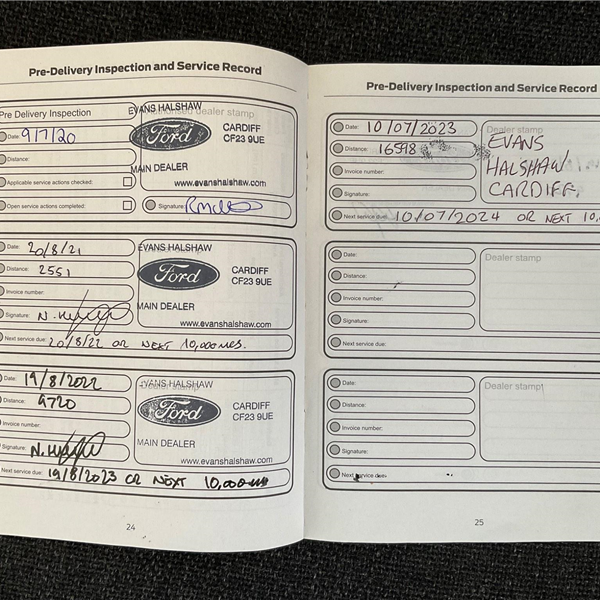 Pre-Delivery Inspection and Service Record
Pre Delivery Inspection
Date: 9/7/20
Distance:
Applicable service actions checked:
Open service actions completed:
EVANS HALSHAW
dealer stamp
Ford
CARDIFF
CF23 9UE
MAIN DEALER
www.evanshalshaw.com
Signature:
Date: 20/8/21
Distance: 2551
Invoice number:
Signature:
Next service due: 20/8/22 OR NEXT 10,000MLS.
EVANS HALSHAW
Ford
CARDIFF
CF23 9UE
MAIN DEALER
www.evanshalshaw.com
Date: 19/8/2022
Distance: 9720
Invoice number:
Signature:
Next service due: 19/8/2023 OR NEXT 10,000
EVANS HALSHAW
Dealer stamp
Ford
CARDIFF
CF23 9UE
MAIN DEALER
www.evanshalshaw.com
24
Pre-Delivery Inspection and Service Record
Date: 10/07/2023
Distance: 16598
Invoice number:
Signature:
Next service due: 10/07/2024 OR NEXT 10,
Dealer stamp
EVANS
HALSHAW
CARDIFF.
Date:
Distance:
Invoice number:
Signature:
Next service due:
Dealer stamp
Date:
Distance:
Invoice number:
Signature:
Next service due:
Dealer stamp
25